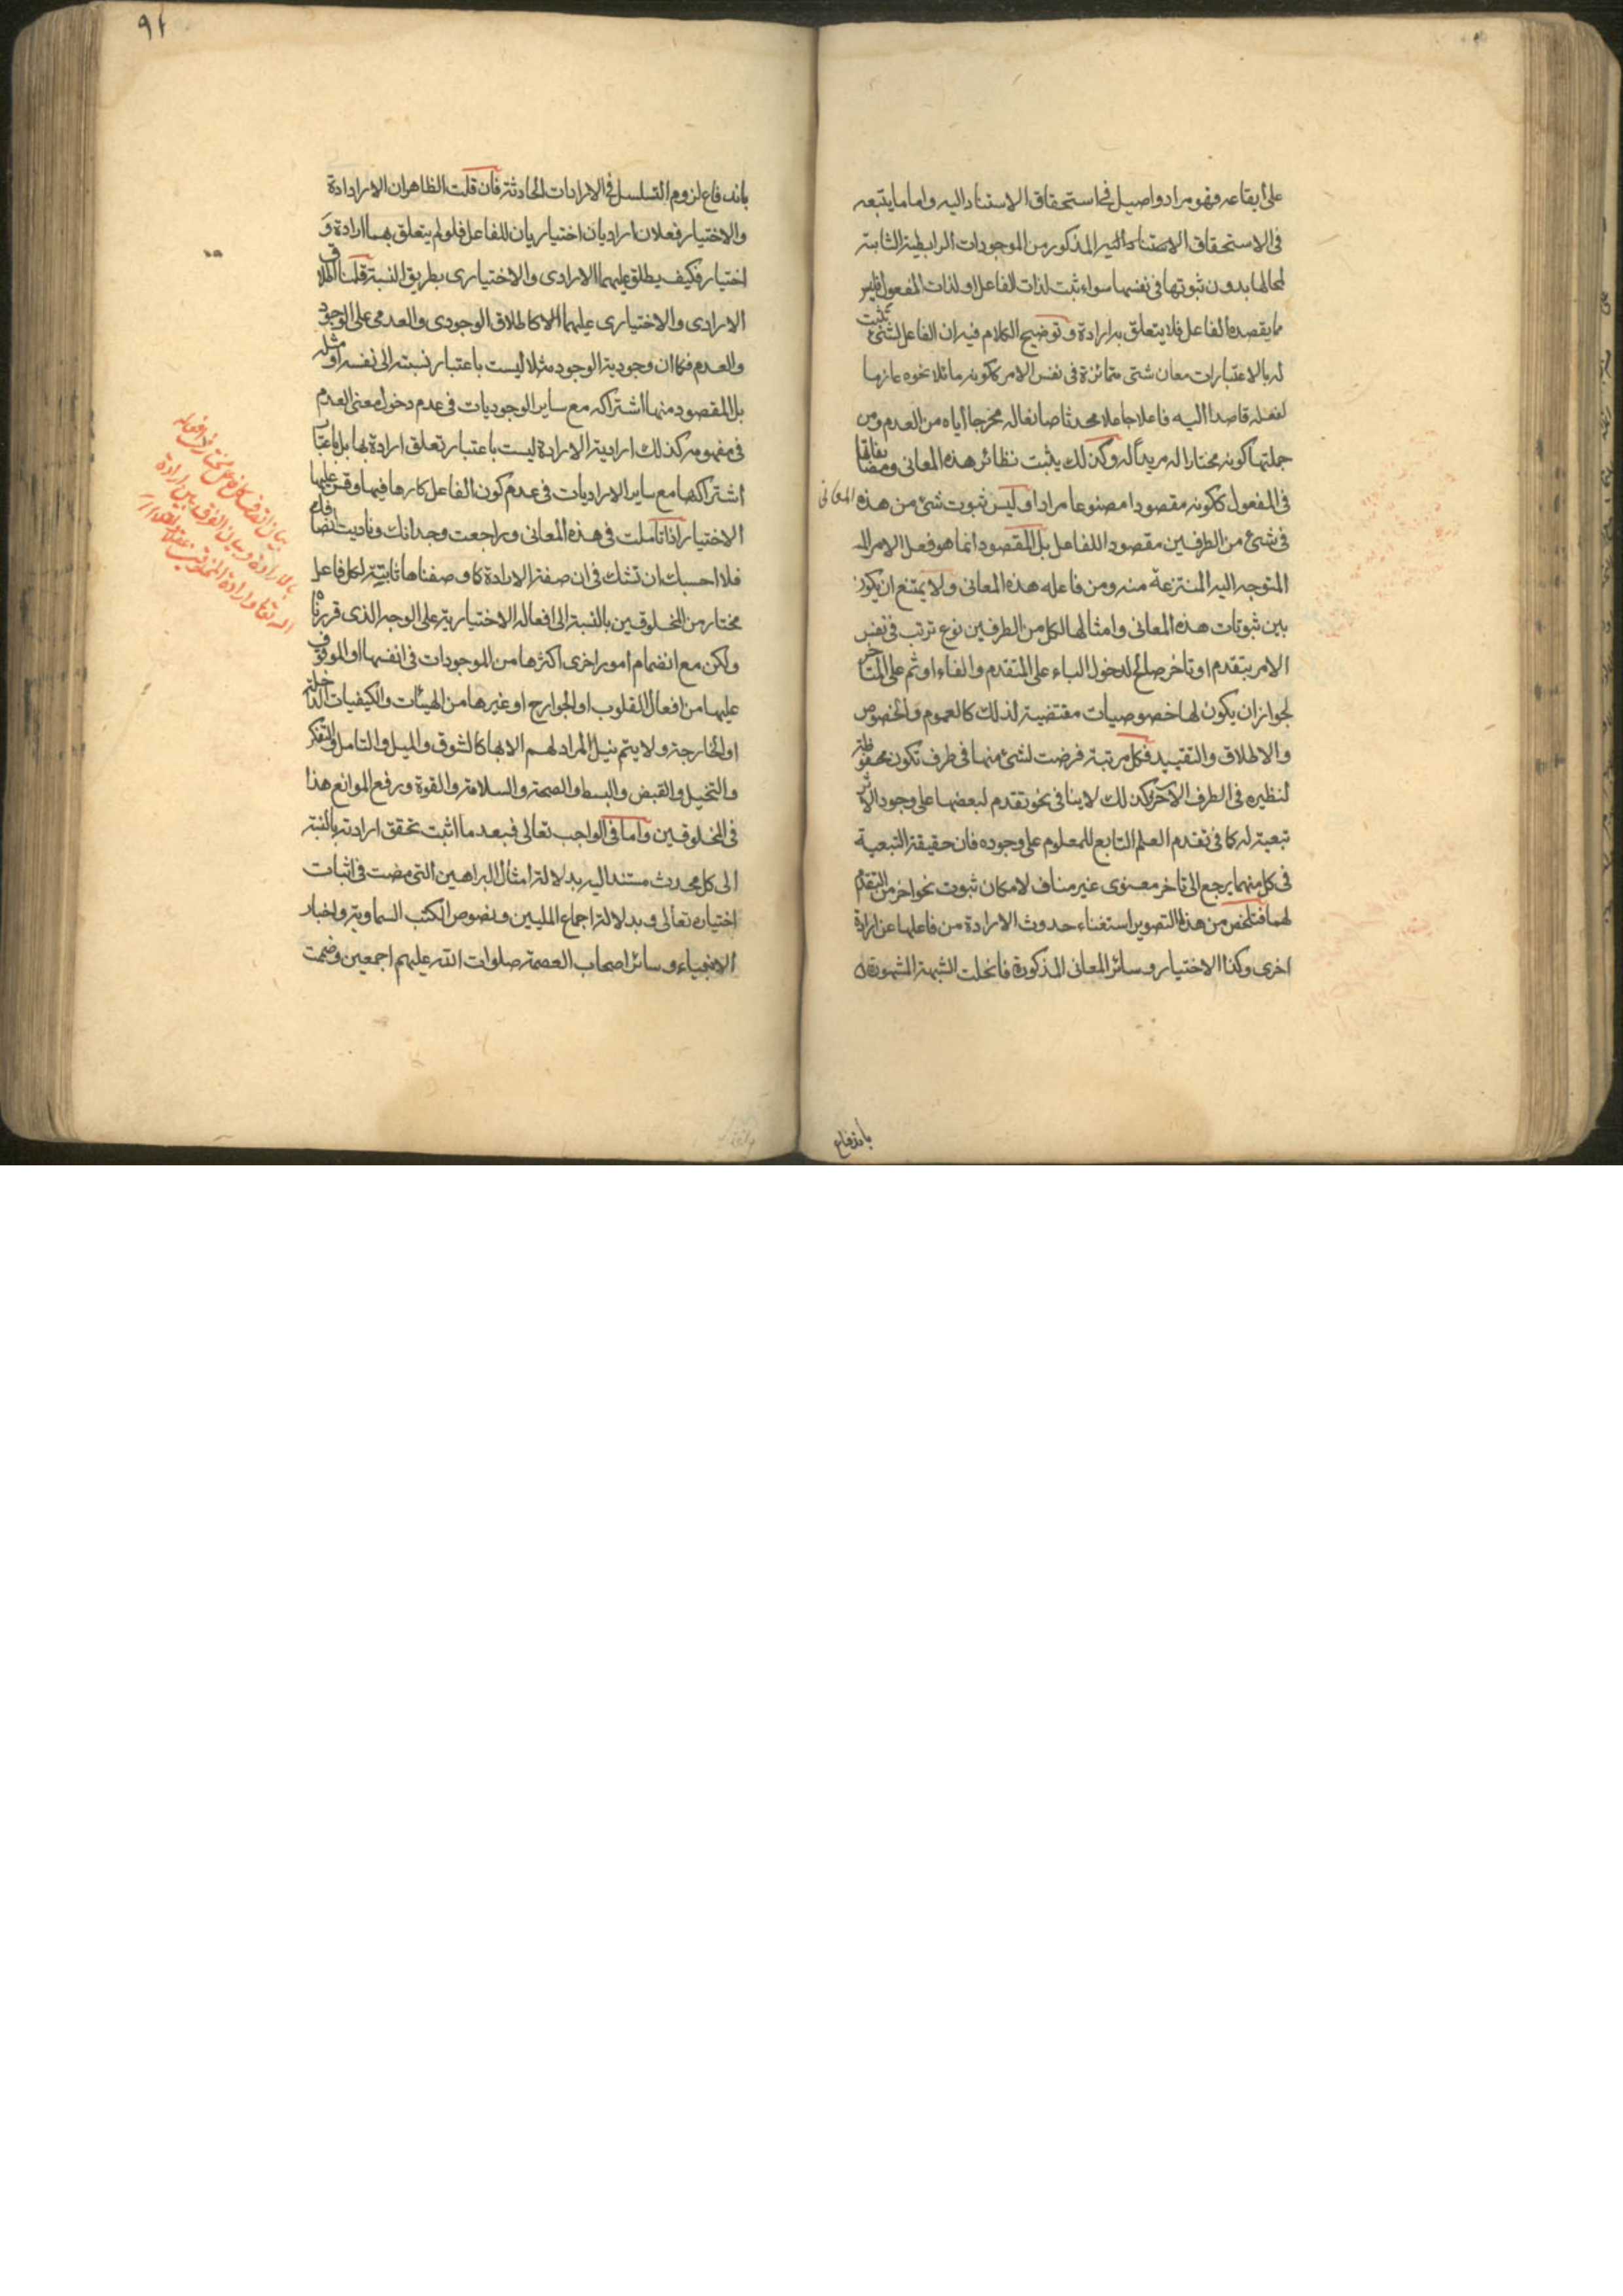 على ايقاعه فهو مراد واصيل في استحقاق الاستناد اليه واما ما يتبعه
في الاستحقاق الاستناد اليه المذكور من الموجودات الرابطية الثابتة
لمحالها بدون ثبوتها في نفسها سواء ثبت لذات الفاعل او لذات المفعول فليس
مما يقصده الفاعل فلا يتعلق به ارادة وتوضيح الكلام فيه ان الفاعل لشئ يثبت
له بالاعتبارات معان شتى متمائزة في نفس الامر ككونه مائلا نحوه عازما
لفعله قاصدا اليه فاعلا جاعلا محدثا صانعا له مخرجا اياه من العدم ومن
جملتها كونه مختارا له مريدا له وكذلك يثبت نظائر هذه المعاني ومضايفاتها
في المفعول ككونه مقصودا مصنوعا مرادا وليس ثبوت شئ من هذه المعانى
في شئ من الطرفين مقصودا للفاعل بل المقصود انما هو فعل الامر
المتوجه اليه المنتزعة منه ومن فاعله هذه المعاني ولا يمتنع ان يكون
بين ثبوتات هذه المعاني وامثالها لكل من الطرفين نوع ترتب في نفس
الامر بتقدم او تاخر صالح لدخول الباء على المتقدم والفاء او ثم على المتاخر
لجواز ان يكون لها خصوصيات مقتضية لذلك كالعموم والخصوص
والاطلاق والتقييد فكل مرتبة فرضت لشئ منها في طرف تكون محفوظة
لنظيره في الطرف الآخر وكذلك لا ينافي نحو تقدم لبعضها على وجود الاثر
تبعيته له كما في تقدم العلم التابع للمعلوم على وجوده فان حقيقة التبعية
في كل منهما يرجع الى تاخر معنوى غير مناف لامكان ثبوت نحو اخر من التقدم
لهما فتلخص من هذا التصوير استغناء حدوث الارادة من فاعلها عن ارادة
اخرى وكذا الاختيار وسائر المعاني المذكورة فانحلت الشبهة المشهورة
باندفاع
٩١
باندفاع لزوم التسلسل في الارادات الحادثة فان قلت الظاهر ان الارادة
والاختيار فعلان اراديان اختياريان للفاعل فلو لم يتعلق بهما ارادة و
اختيار فكيف يطلق عليهما الارادى والاختيارى بطريق النسبة قلنا اطلاق
الارادى والاختيارى عليهما كاطلاق الوجودى والعدمي على الوجود
والعدم فكما ان وجودية الوجود مثلا ليست باعتبار نسبته الى نفسه او مثله
بل المقصود منها اشتراكه مع ساير الوجوديات في عدم دخول معنى العدم
في مفهومه كذلك ارادية الارادة ليست باعتبار تعلق ارادة بها بل باعتبار
اشتراكها مع ساير الاراديات في عدم كون الفاعل كارها فيها وقس عليها
الاختيار اذا تاملت في هذه المعاني وراجعت وجدانك وناديت انصافك
فلا احسبك ان تشك في ان صفة الارادة كما وصفناها ثابتة لكل فاعل
مختار من المخلوقين بالنسبة الى افعاله الاختيارية على الوجه الذى قررناه
ولكن مع انضمام امور اخرى اكثرها من الموجودات في انفسها او الموقوف
عليها من افعال القلوب او الجوارح او غيرها من الهيئات والكيفيات الداخلة
او الخارجة ولا يتم نيل المراد لهم الا بها كالشوق والميل والتامل والتفكر
والتخيل والقبض والبسط والصحة والسلامة والقوة ورفع الموانع هذا
في المخلوقين واما في الواجب تعالى فبعد ما اثبت تحقق ارادته بالنسبة
الى كل محدث مستند اليه بدلالة امثال البراهين التي مضت في اثبات
اختياره تعالى وبدلالة اجماع المليين ونصوص الكتب السماوية واخبار
الانبياء وسائر اصحاب العصمة صلوات الله عليهم اجمعين وضمت
بيان اتصاف كل فاعل مختار لافعاله
بالارادة وبيان الفرق بين ارادة
الله تعالى وارادة المخلوقين